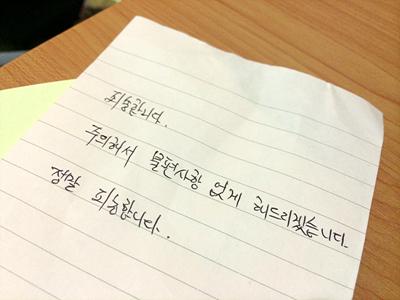 죄송합니다.
주의해서 불편사항 없게 해드리겠습니다.
정말 죄송합니다..